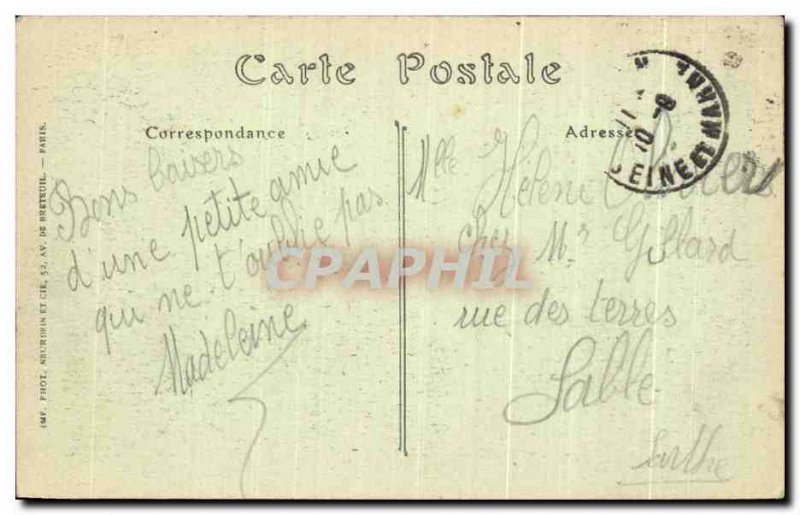 Carte Postale
Correspondance
Adresse
Bons baisers
d'une petite amie
qui ne t'oublie pas
Madeleine
Mlle Hélène
chez Mr Gillard
rue des terres
Sablé
Sarthe
SEINE ET MARNE
CPAPHIL
IMP. PHOT. NEURDEIN ET CIE, 52, AV. DE BRETEUIL. — PARIS.